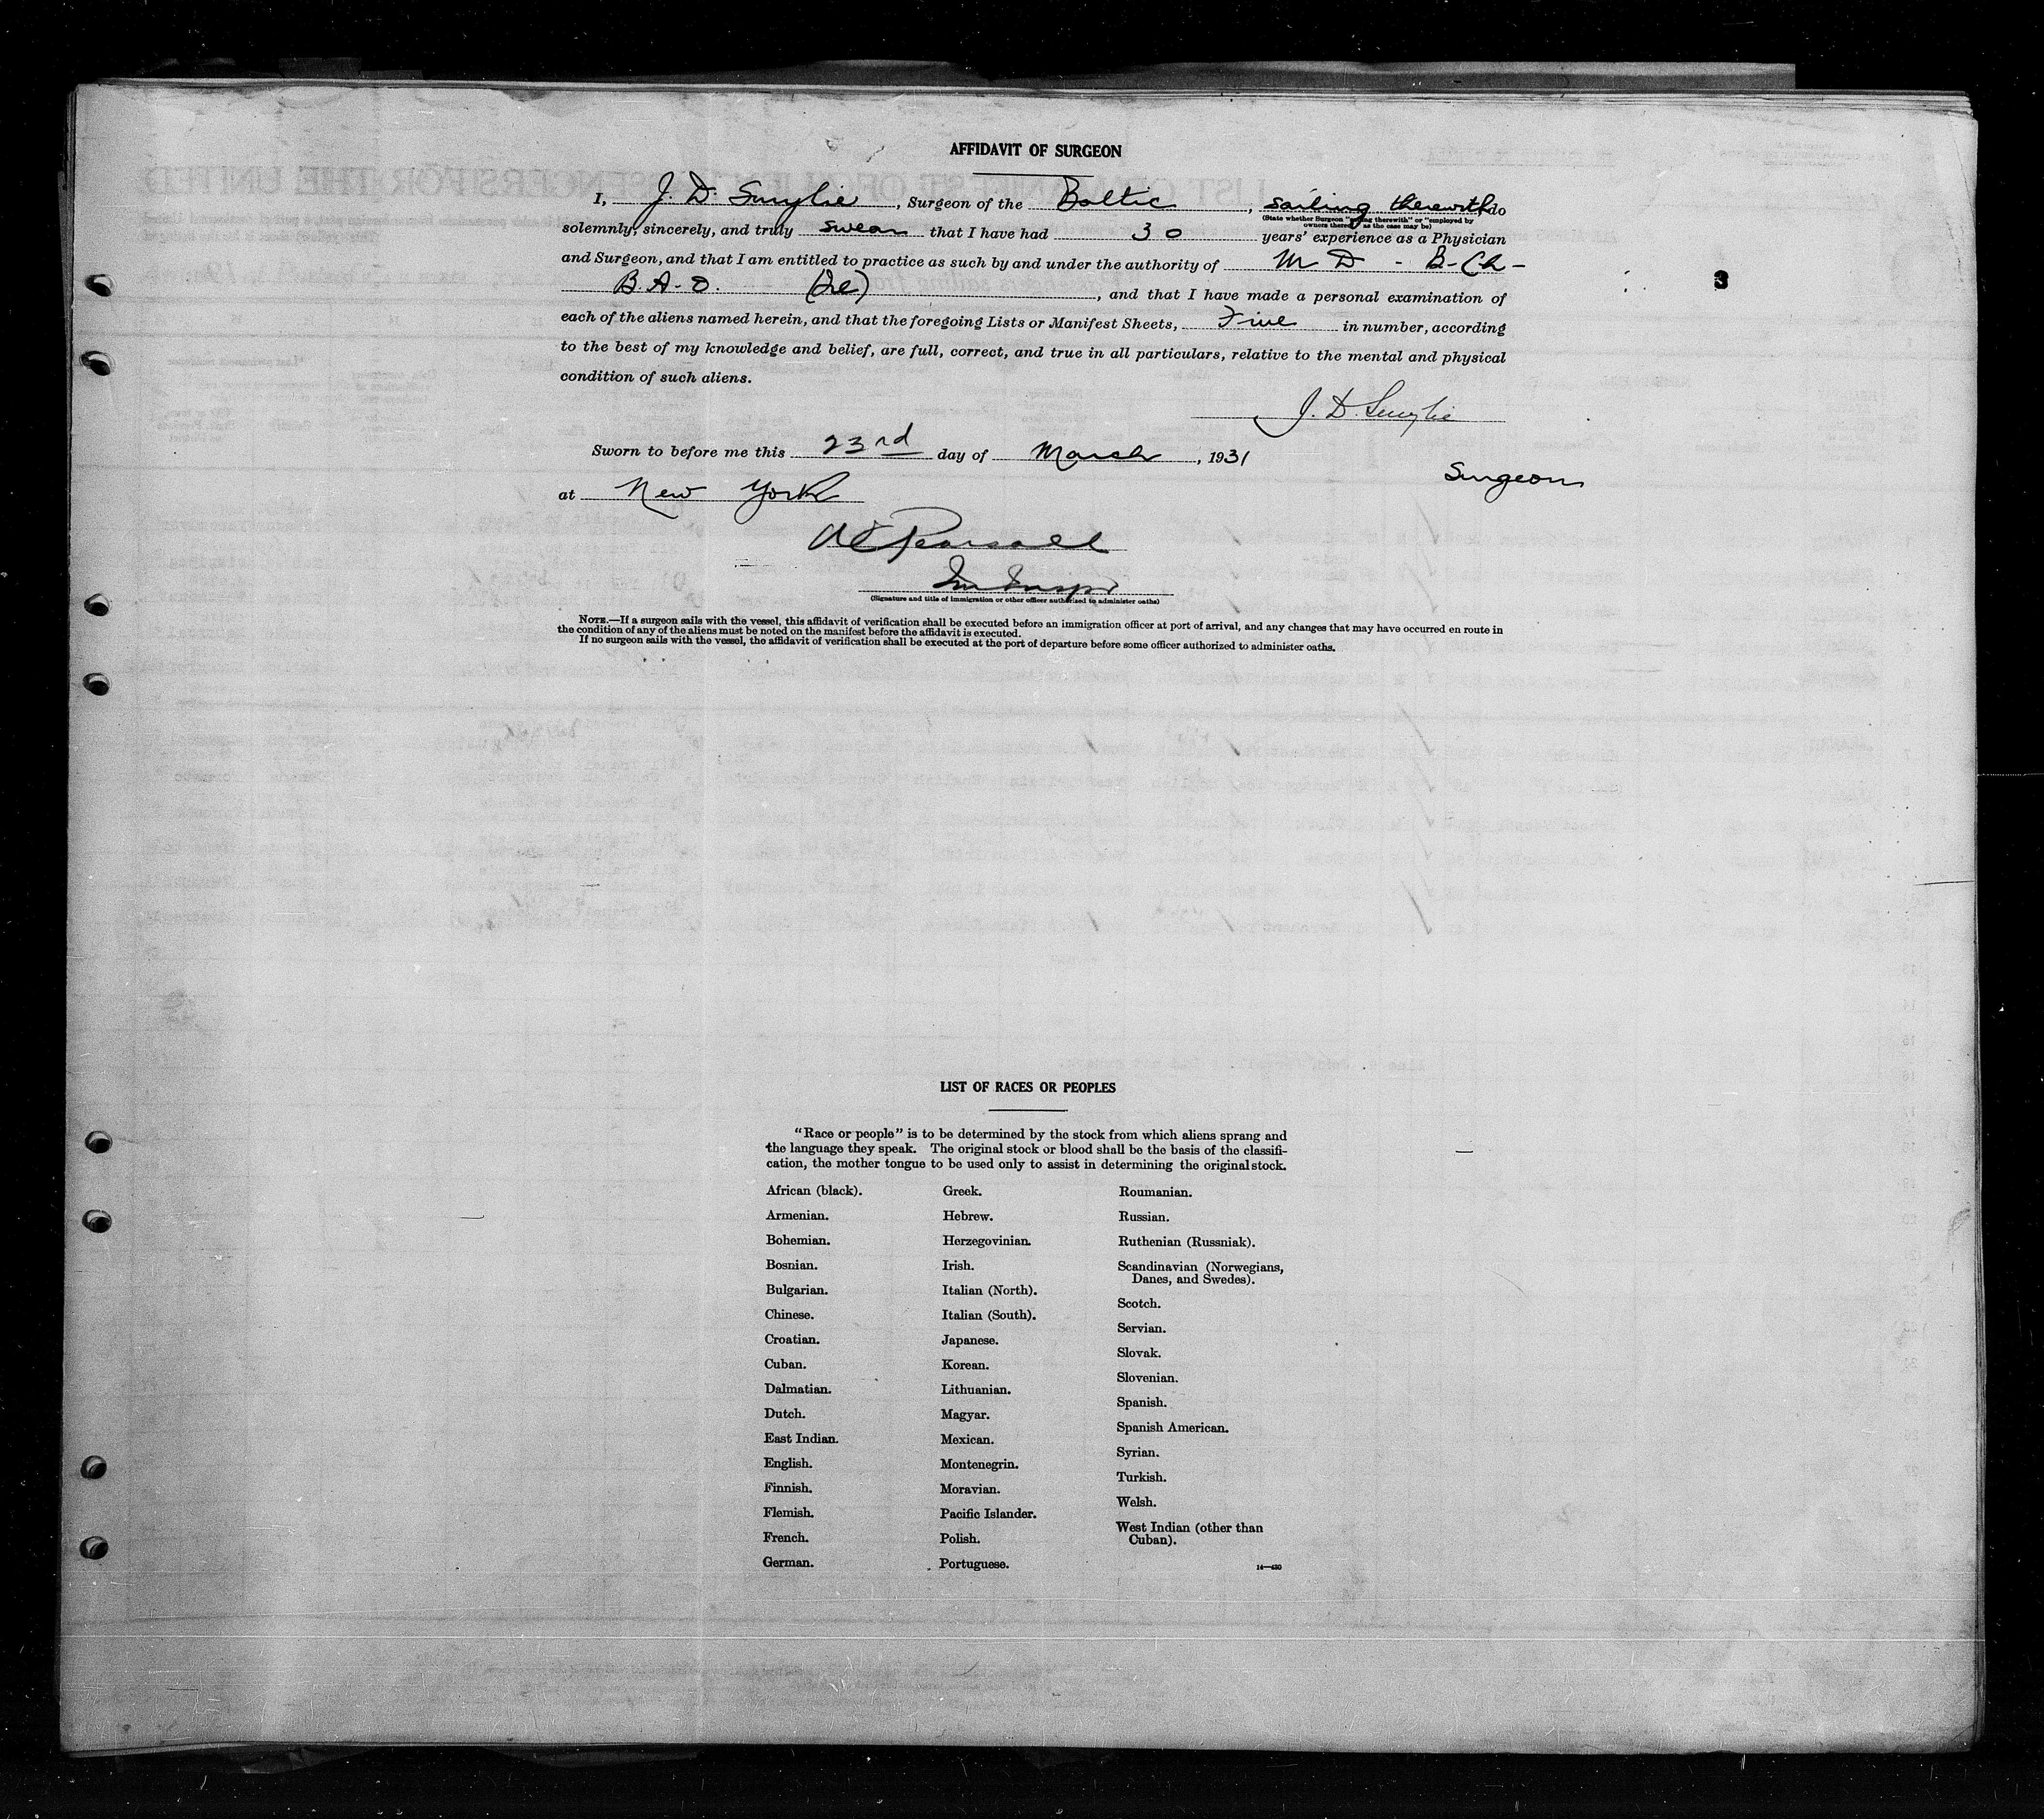 AFFIDAVIT OF SURGEON
I, J. D. Smylie, Surgeon of the Baltic, sailing therewith do
(State whether Surgeon "sailing therewith" or "employed by
owners thereof," as the case may be)
solemnly, sincerely, and truly swear that I have had 30 years' experience as a Physician
and Surgeon, and that I am entitled to practice as such by and under the authority of M D - B-Ch-
B. A-O. (Irel), and that I have made a personal examination of
3
each of the aliens named herein, and that the foregoing Lists or Manifest Sheets, Five in number, according
to the best of my knowledge and belief, are full, correct, and true in all particulars, relative to the mental and physical
condition of such aliens.
J. D. Smylie
Sworn to before me this 23rd day of March, 1931
Surgeon
at New York
Pearsall
Im Inspr
(Signature and title of immigration or other officer authorized to administer oaths)
NOTE.—If a surgeon sails with the vessel, this affidavit of verification shall be executed before an immigration officer at port of arrival, and any changes that may have occurred en route in
the condition of any of the aliens must be noted on the manifest before the affidavit is executed.
If no surgeon sails with the vessel, the affidavit of verification shall be executed at the port of departure before some officer authorized to administer oaths.
LIST OF RACES OR PEOPLES
"Race or people" is to be determined by the stock from which aliens sprang and
the language they speak. The original stock or blood shall be the basis of the classifi-
cation, the mother tongue to be used only to assist in determining the original stock.
African (black).
Armenian.
Bohemian.
Bosnian.
Bulgarian.
Chinese.
Croatian.
Cuban.
Dalmatian.
Dutch.
East Indian.
English.
Finnish.
Flemish.
French.
German.
Greek.
Hebrew.
Herzegovinian.
Irish.
Italian (North).
Italian (South).
Japanese.
Korean.
Lithuanian.
Magyar.
Mexican.
Montenegrin.
Moravian.
Pacific Islander.
Polish.
Portuguese.
Roumanian.
Russian.
Ruthenian (Russniak).
Scandinavian (Norwegians,
Danes, and Swedes).
Scotch.
Servian.
Slovak.
Slovenian.
Spanish.
Spanish American.
Syrian.
Turkish.
Welsh.
West Indian (other than
Cuban).